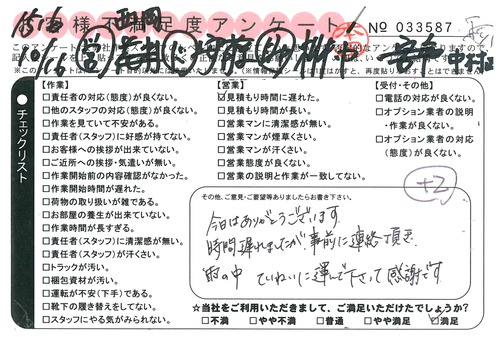 お客様不満足度アンケート
№ 033587
【作業】
□責任者の対応(態度)が良くない。
□他のスタッフの対応(態度)が良くない。
□作業を見ていて不安がある。
□責任者(スタッフ)に好感が持てない。
□お客様への挨拶が出来ていない。
□ご近所への挨拶・気遣いが無い。
□作業開始前の内容確認がなかった。
□作業開始時間が遅れた。
□荷物の取り扱いが雑である。
□お部屋の養生が出来ていない。
□作業時間が長すぎる。
□責任者(スタッフ)に清潔感が無い。
□責任者(スタッフ)が汗くさい。
□トラックが汚い。
□梱包資材が汚い。
□運転が不安(下手)である。
□靴下の履き替えをしてない。
□スタッフにやる気がみられない。
【営業】
☑見積もり時間に遅れた。
□見積もり時間が長い。
□営業マンに清潔感が無い。
□営業マンが煙草くさい。
□営業マンが汗くさい。
□営業態度が良くない。
□営業の説明と作業が一致してない。
【受付・その他】
□電話の対応が良くない。
□オプション業者の説明・作業が良くない。
□オプション業者の対応(態度)が良くない。
チェックリスト
+2
その他、ご意見・ご要望等ありましたらお書き下さい。
今日はありがとうございます。
時間遅れましたが、事前に連絡頂き
雨の中 ていねいに運んで下さって感謝です
☆当社をご利用いただきまして、ご満足いただけたでしょうか?
□不満 □やや不満 □普通 □やや満足 ☑満足